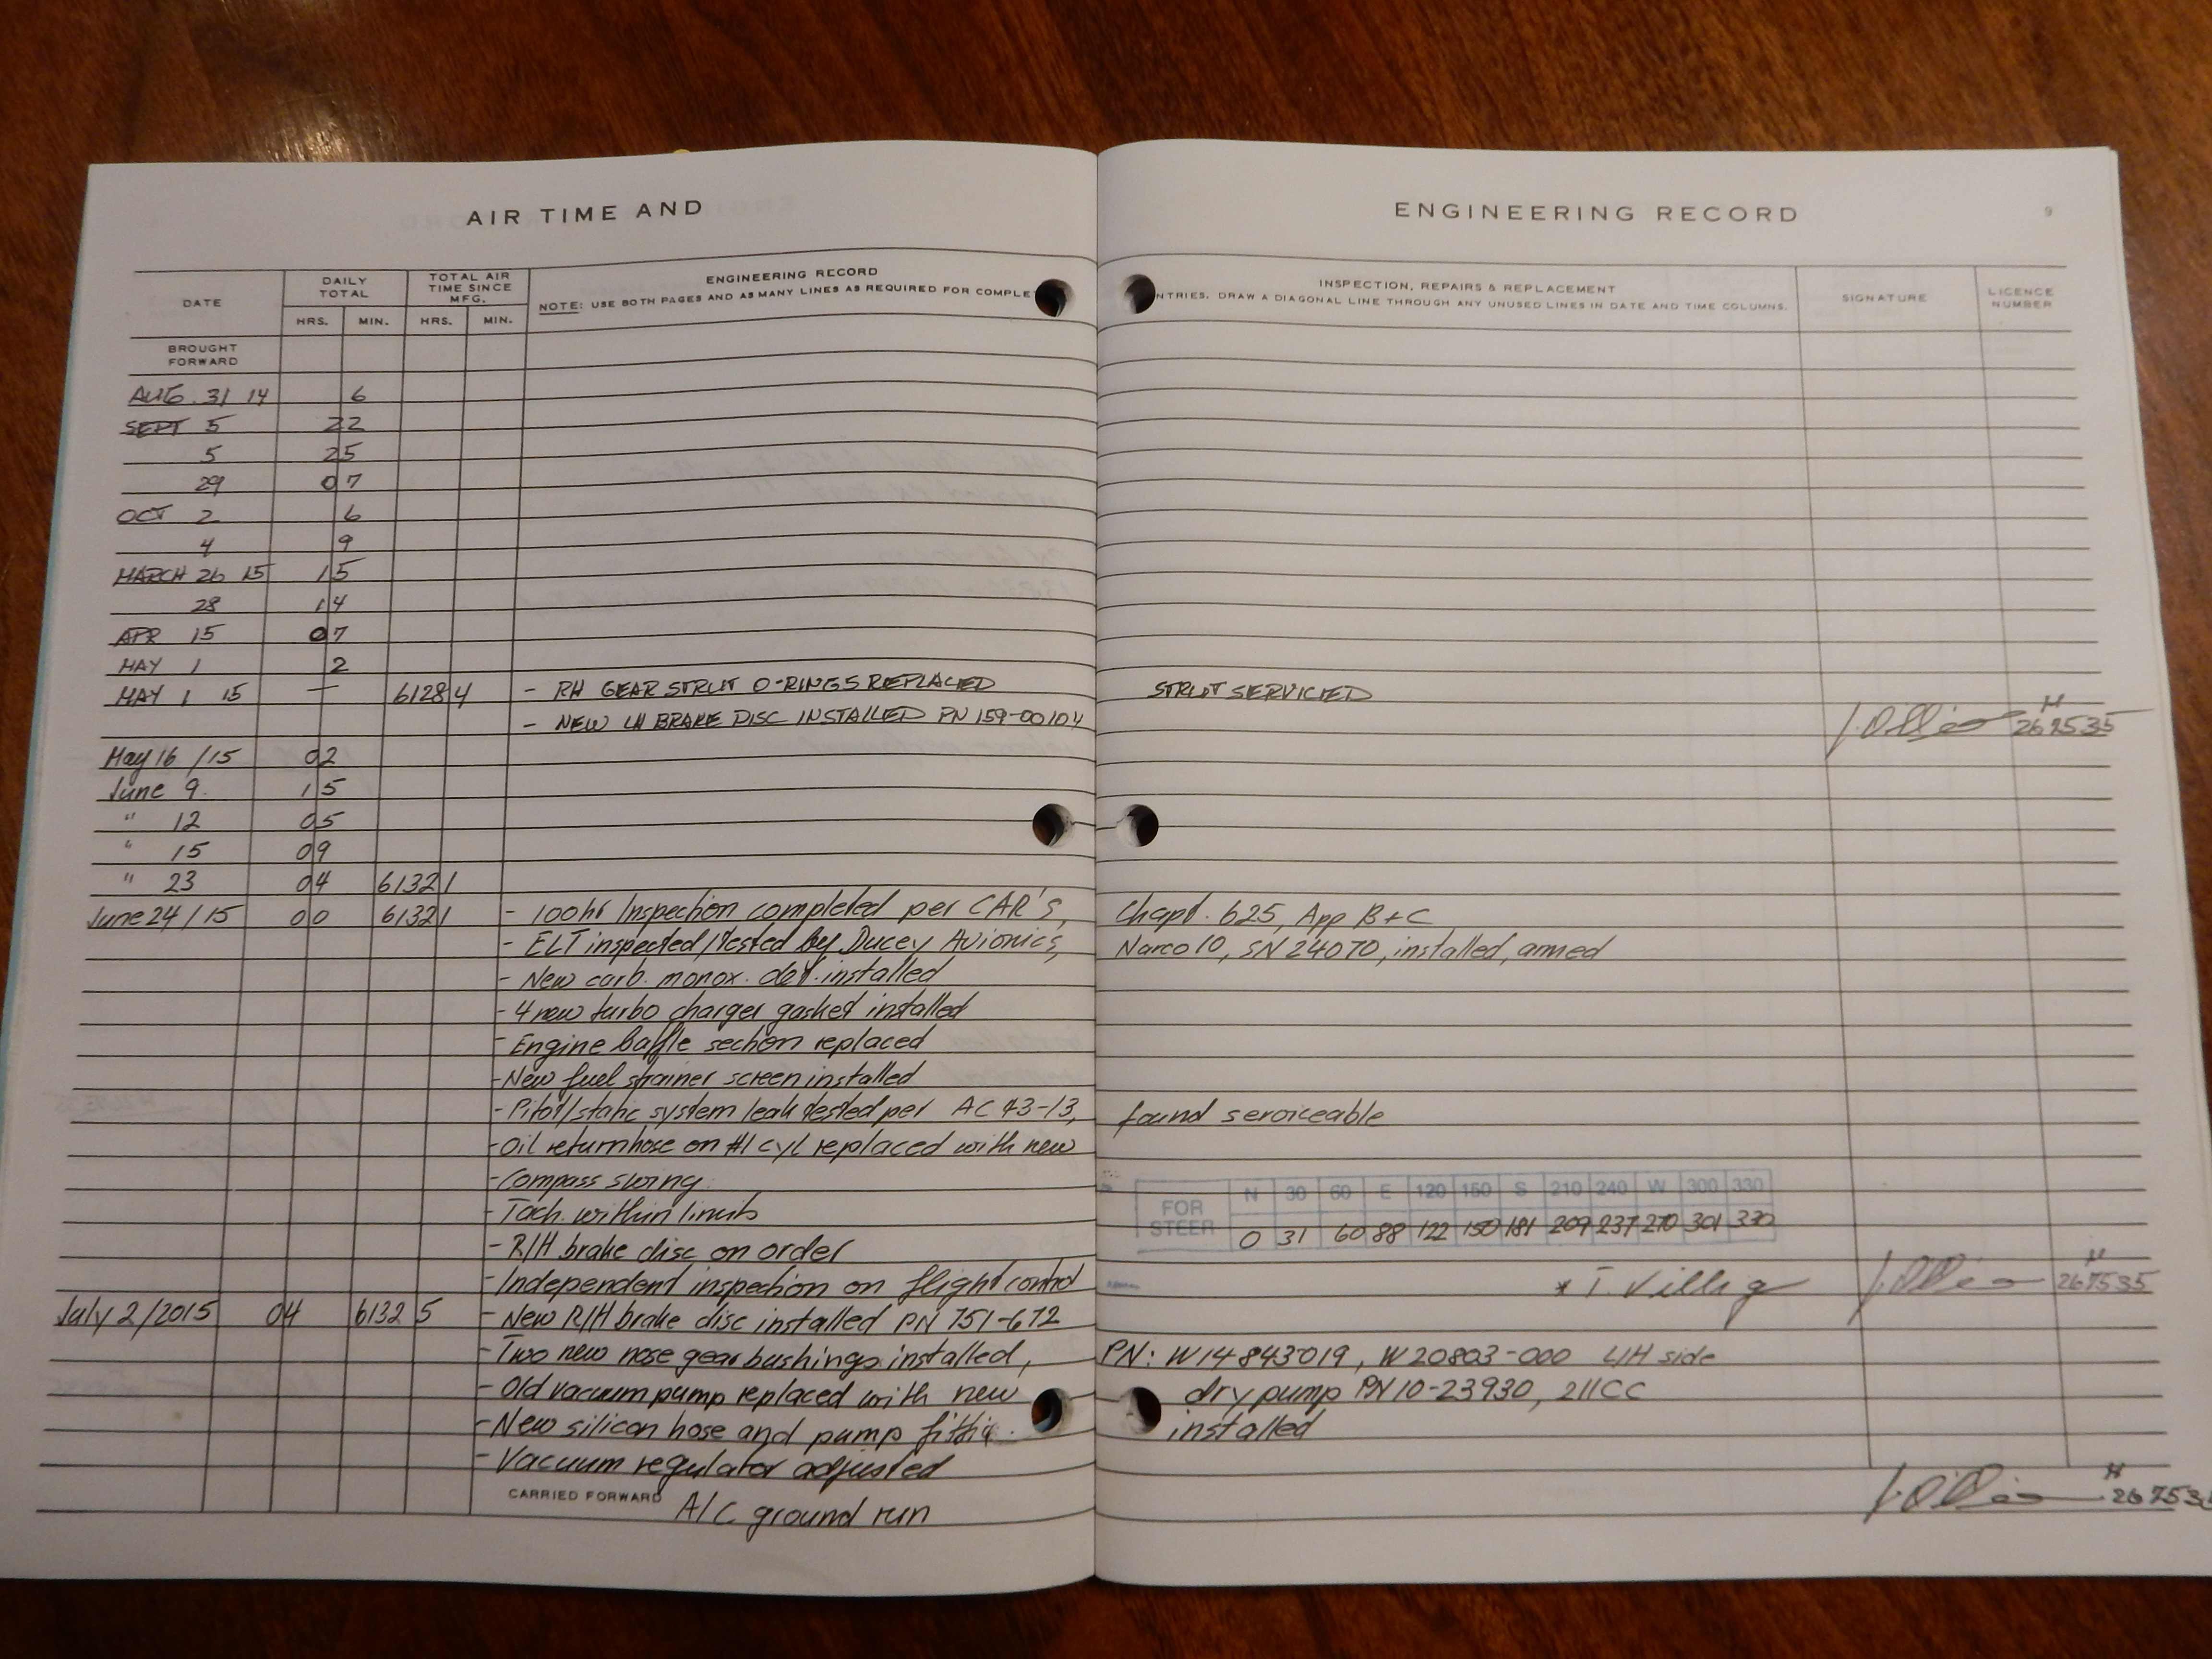 AIR TIME AND
ENGINEERING RECORD 9
DATE
DAILY TOTAL
TOTAL AIR TIME SINCE MFG.
HRS. MIN. HRS. MIN.
ENGINEERING RECORD
NOTE: USE BOTH PAGES AND AS MANY LINES AS REQUIRED FOR COMPLE
INSPECTION, REPAIRS & REPLACEMENT
NTRIES. DRAW A DIAGONAL LINE THROUGH ANY UNUSED LINES IN DATE AND TIME COLUMNS.
SIGNATURE
LICENCE NUMBER
BROUGHT FORWARD
AUG. 31 14 6
SEPT 5 22
5 25
29 07
OCT 2 6
4 9
MARCH 26 15 15
28 14
APR 15 07
MAY 1 2
MAY 1 15 — 6128 4 - RH GEAR STRUT O-RINGS REPLACED STRUT SERVICIED
- NEW LH BRAKE DISC INSTALLED PN 159-00104
May 16 /15 02
June 9. 15
" 12 05
" 15 09
" 23 04 6132 1
June 24/15 00 6132 1 - 100hr Inspection completed per CAR's, Chapt. 625, App B+C
- ELT inspected/tested by Ducey Avionics, Narco 10, SN 24070, installed, armed
- New carb. monox. det. installed
- 4 new turbo charger gasket installed
- Engine baffle section replaced
- New fuel strainer screen installed
- Pitot/static system leak tested per AC 43-13, found serviceable
- Oil returnhose on #1 cyl replaced with new
- Compass swing
FOR STEER N 30 60 E 120 150 S 210 240 W 300 330
0 31 60 88 122 150 181 209 237 270 301 330
- Tach. within limits
- R/H brake disc on order
- Independent inspection on flight control * T. Villig H 267535
July 2/2015 04 6132 5 - New R/H brake disc installed PN 751-672
- Two new nose gear bushings installed, PN: W14843019, W20803-000 L/H side
- Old vacuum pump replaced with new dry pump PN 10-23930, 211CC
- New silicon hose and pump installed
- Vacuum regulator adjusted
CARRIED FORWARD A/C ground run